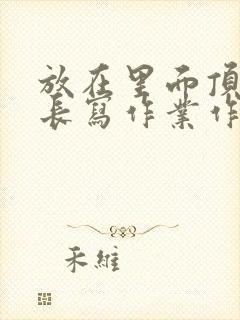 放在里而頂
長寫作業作
禾維